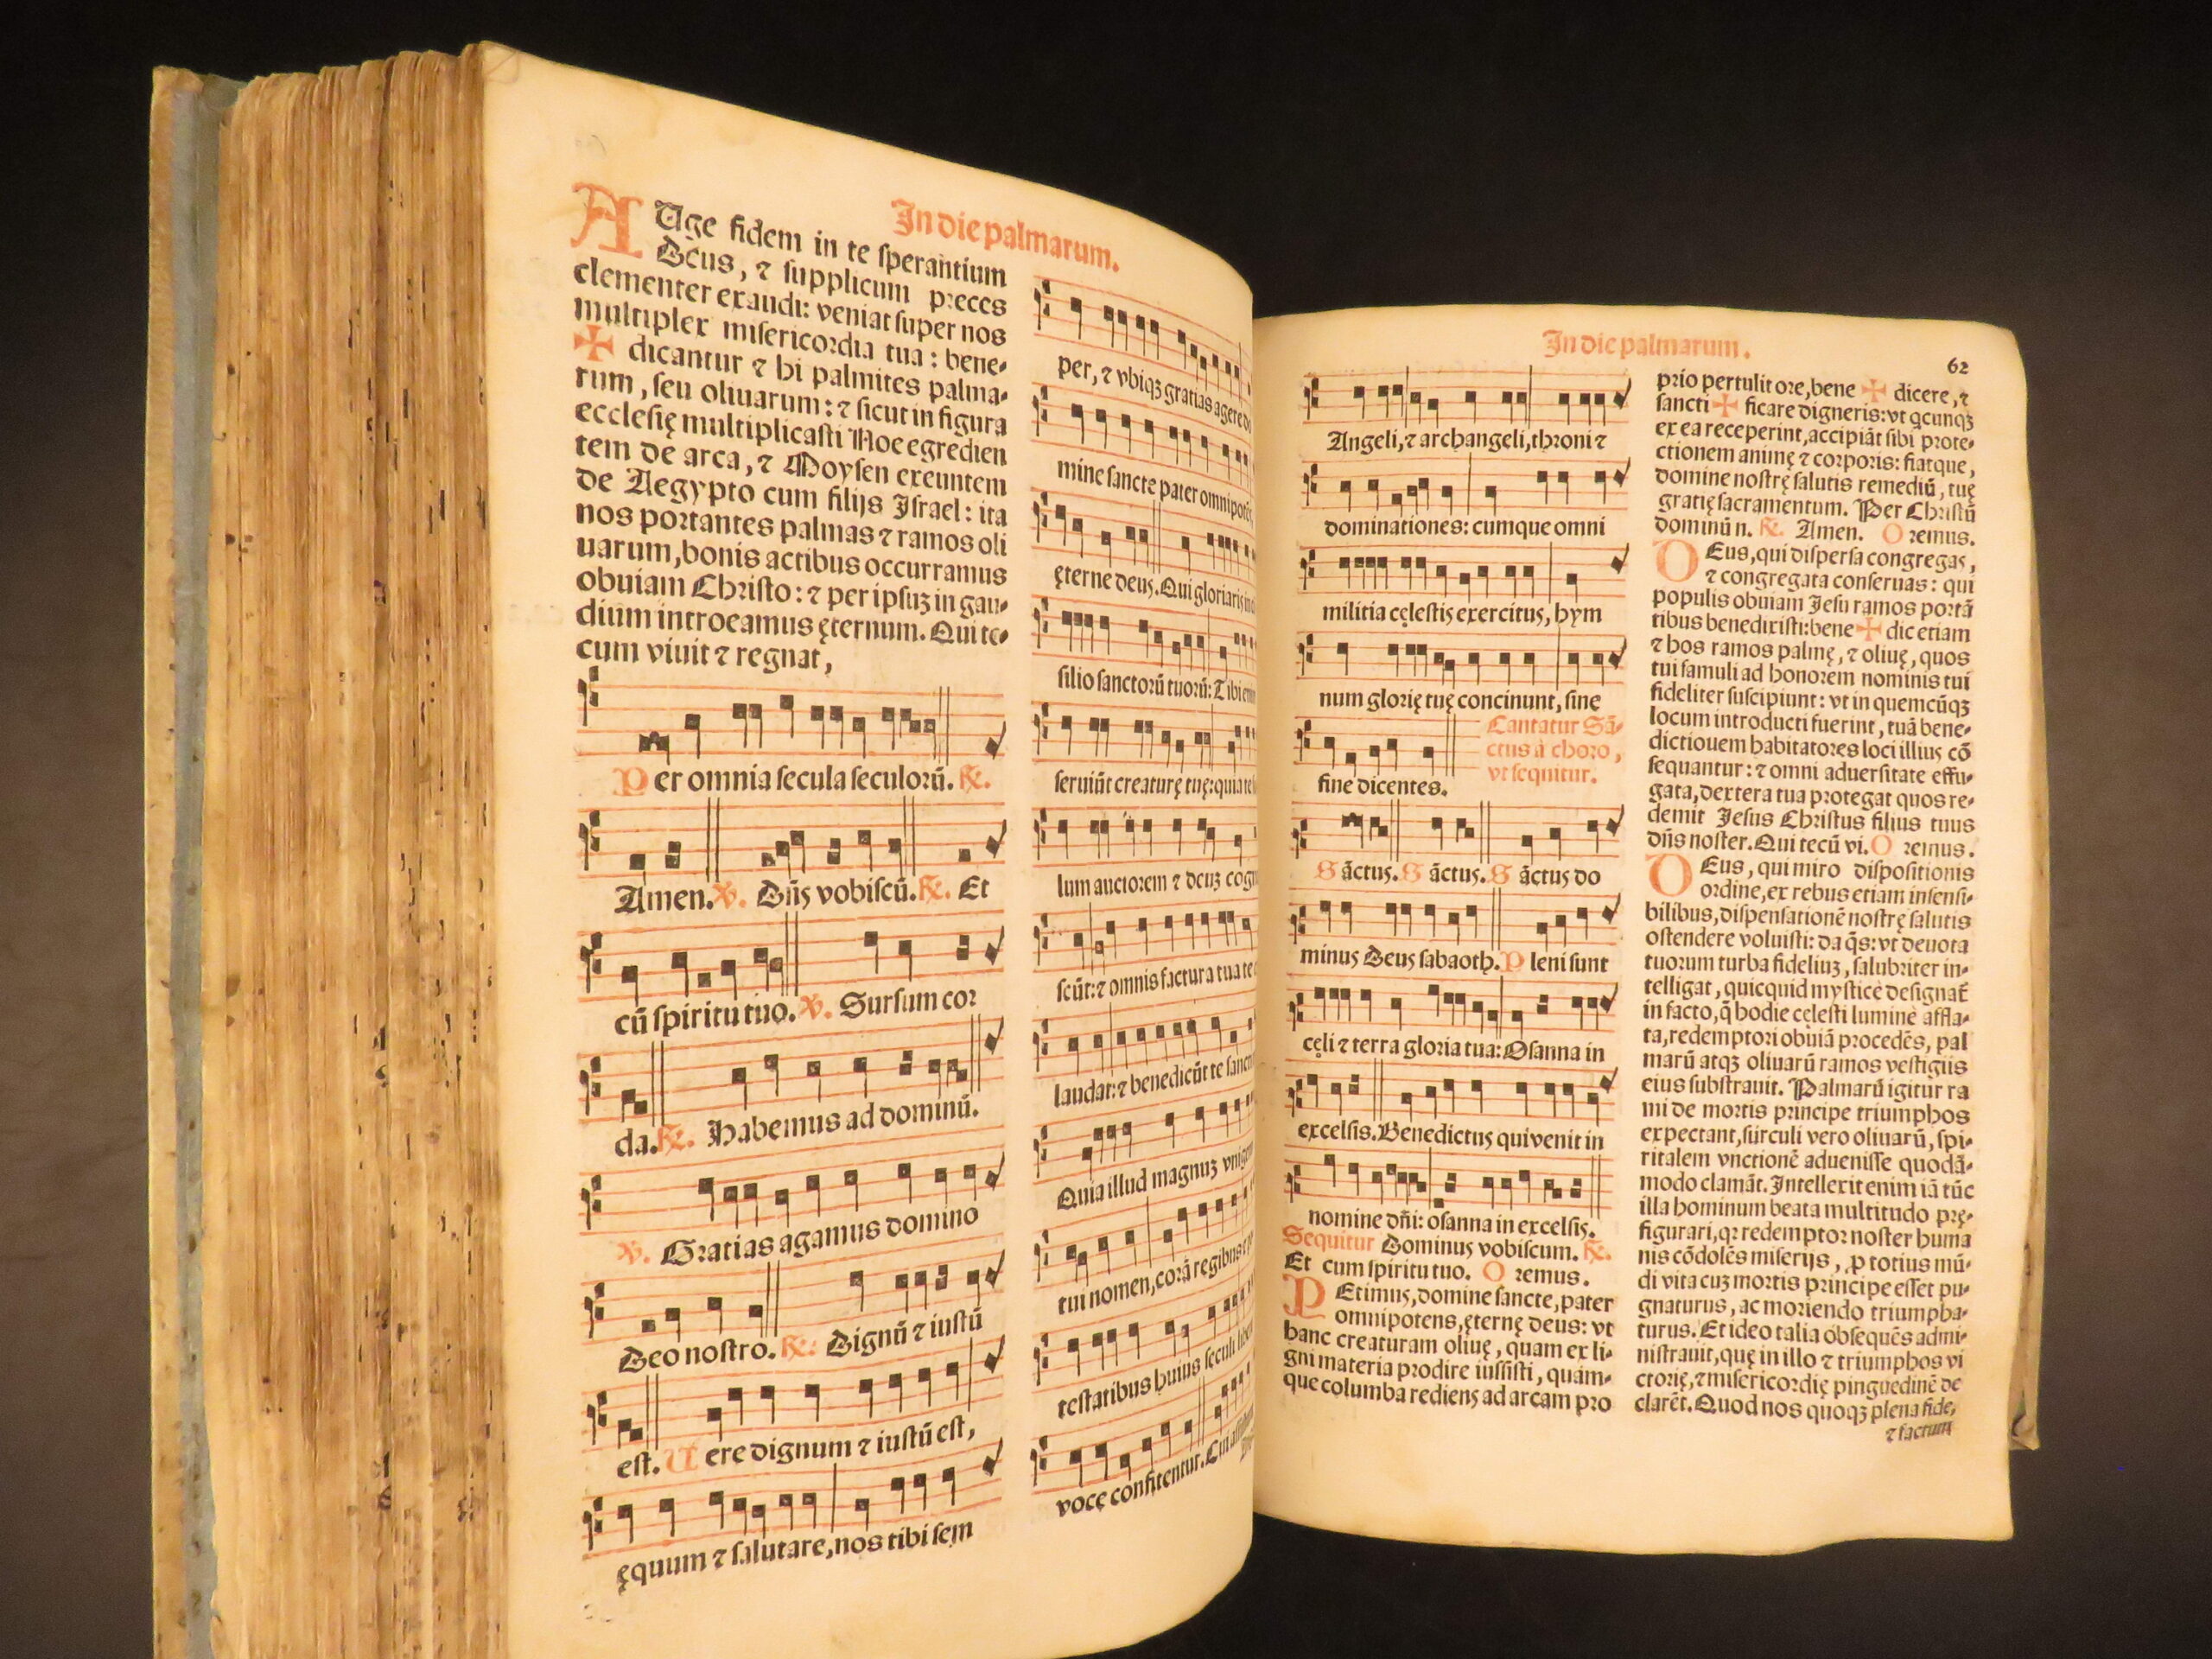 In die palmarum.
AUge fidem in te sperantium
Deus, ⁊ supplicum preces
clementer exaudi: veniat super nos
multiplex misericordia tua: bene-
✠ dicantur ⁊ hi palmites palma-
rum, seu oliuarum: ⁊ sicut in figura
ecclesię multiplicasti Noe egredien
tem de arca, ⁊ Moysen exeuntem
de Aegypto cum filijs Israel: ita
nos portantes palmas ⁊ ramos oli
uarum, bonis actibus occurramus
obuiam Christo: ⁊ per ipsuꝫ in gau-
dium introeamus ęternum. Qui te-
cum viuit ⁊ regnat,
Per omnia secula seculorū. ℟.
Amen. ℣. Dn̄s vobiscū. ℟. Et
cū spiritu tuo. ℣. Sursum cor
da. ℟. Habemus ad dominū.
℣. Gratias agamus domino
Deo nostro. ℟: Dignū ⁊ iustū
est. Uere dignum ⁊ iustū est,
ęquum ⁊ salutare, nos tibi sem
per, ⁊ vbiqꝫ gratias agere do
mine sancte pater omnipotēs,
ęterne deus. Qui gloriaris in
silio sanctorū tuorū: Tibi enim
seruiūt creaturę tuę: quia te
lum auctorem ⁊ deuꝫ cogn
scūt: ⁊ omnis factura tua te
laudat: ⁊ benedicūt te sancti
Quia illud magnuꝫ vnigen
tui nomen, corā regibus
testatibus huius seculi
vocę confitentur. Cui
In die palmarum.
62
Angeli, ⁊ archangeli, throni ⁊
dominationes: cumque omni
militia cęlestis exercitus, hym
num glorię tuę concinunt, sine
fine dicentes.
Cantatur Sā-
ctus à choro,
vt sequitur.
Sāctus. Sāctus. Sāctus do
minus Deus sabaoth. Pleni sunt
cęli ⁊ terra gloria tua: Osanna in
excelsis. Benedictus qui venit in
nomine dn̄i: osanna in excelsis.
Sequitur Dominus vobiscum. ℟.
Et cum spiritu tuo. Oremus.
PEtimus, domine sancte, pater
omnipotens, ęternę deus: vt
hanc creaturam oliuę, quam ex li-
gni materia prodire iussisti, quám-
que columba rediens ad arcam pro
prio pertulit ore, bene ✠ dicere, ⁊
sancti ✠ ficare digneris: vt qcunqꝫ
ex ea receperint, accipiāt sibi prote-
ctionem animę ⁊ corporis: fiatque,
domine nostrę salutis remediū, tuę
gratię sacramentum. Per Christū
dominū n. ℟. Amen. Oremus.
DEus, qui dispersa congregas,
⁊ congregata conseruas: qui
populis obuiam Jesu ramos portā
tibus benedixisti: bene ✠ dic etiam
⁊ hos ramos palmę, ⁊ oliuę, quos
tui famuli ad honorem nominis tui
fideliter suscipiunt: vt in quemcūqꝫ
locum introducti fuerint, tuā bene-
dictiouem habitatores loci illius cō
sequantur: ⁊ omni aduersitate effu-
gata, dextera tua protegat quos re-
demit Jesus Christus filius tuus
dn̄s noster. Qui tecū vi. Oremus.
DEus, qui miro dispositionis
ordine, ex rebus etiam insensi-
bilibus, dispensationē nostrę salutis
ostendere voluisti: da q̄s: vt deuota
tuorum turba fideliuꝫ, salubriter in-
telligat, quicquid mysticè designat̄
in facto, q̄ hodie cęlesti lumine affla-
ta, redemptori obuiā procedēs, pal
marū atqꝫ oliuarū ramos vestigiis
eius substrauit. Palmarū igitur ra
mi de mortis principe triumphos
expectant, surculi vero oliuarū, spi-
ritalem vnctionē aduenisse quodā-
modo clamāt. Intellexit enim iā tūc
illa hominum beata multitudo prę-
figurari, qꝛ redemptor noster huma
nis cōdolēs miserijs, ꝓ totius mū-
di vita cuꝫ mortis principe esset pu-
gnaturus, ac moriendo triumpha-
turus. Et ideo talia obsequēs admi-
nistrauit, quę in illo ⁊ triumphos vi
ctorię, ⁊ misericordię pinguedinē de
clarēt. Quod nos quoqꝫ plena fide,
⁊ factum